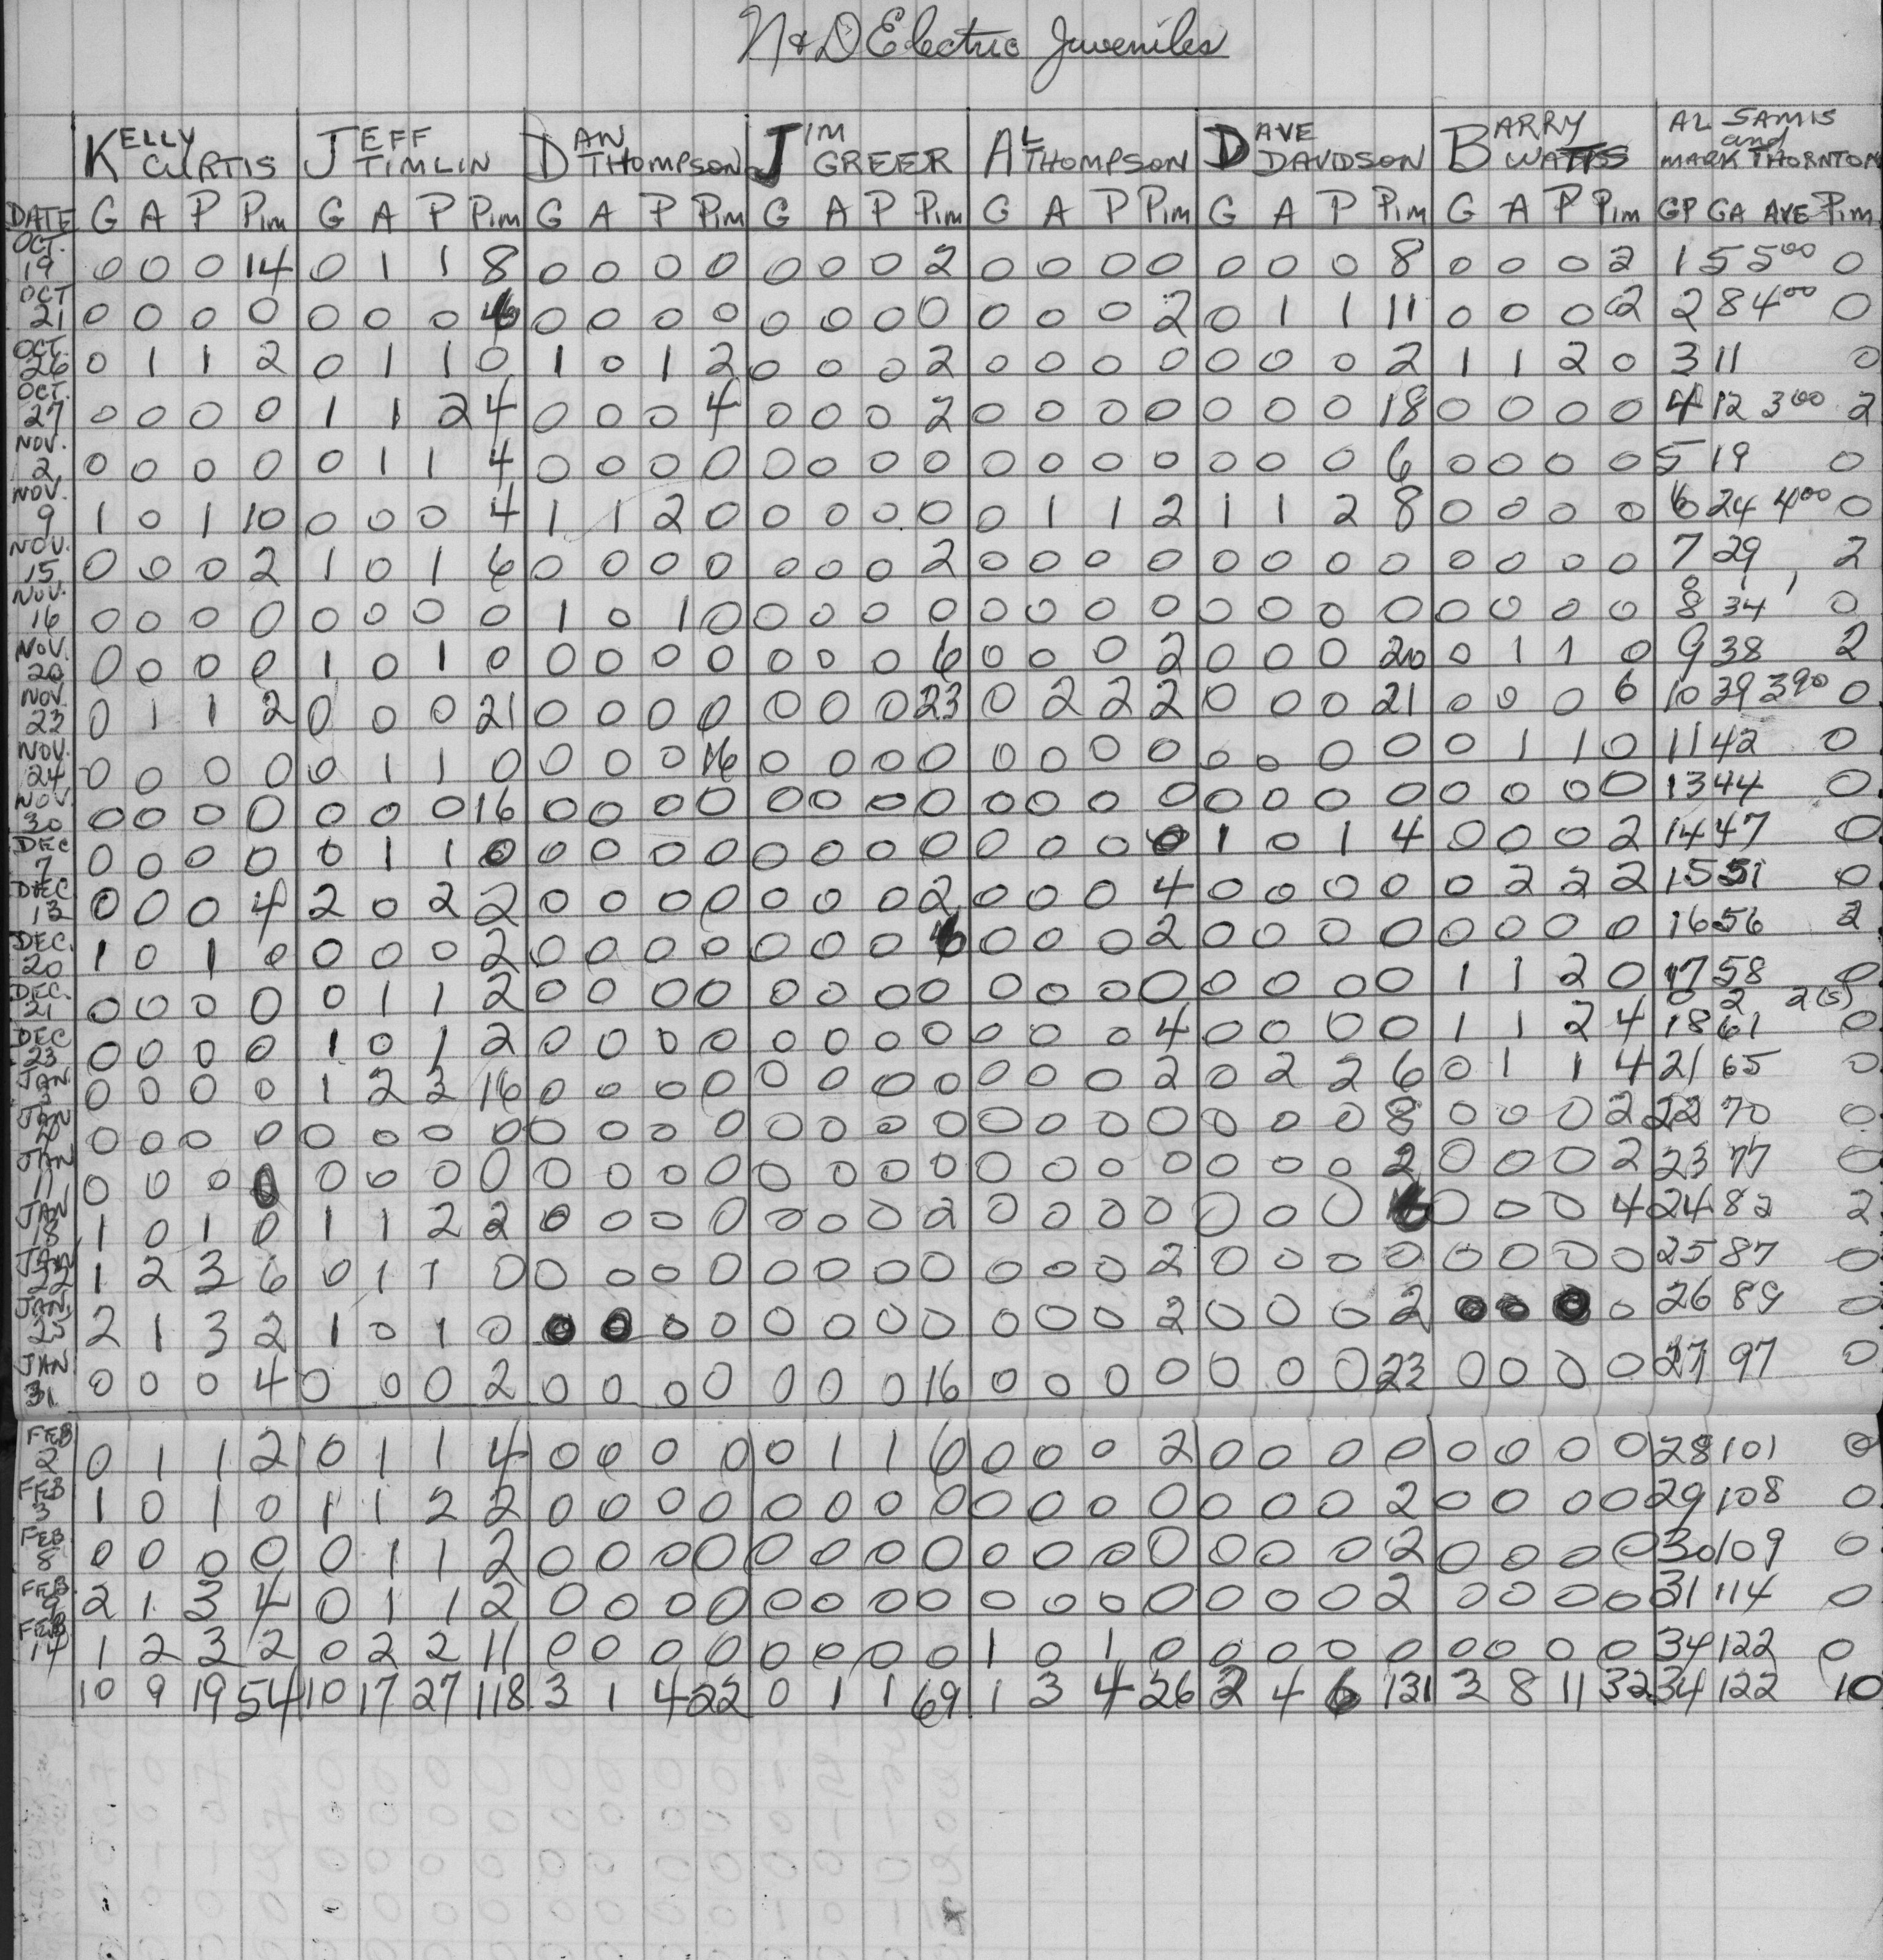 N & D Electric Juveniles
KELLY CURTIS JEFF TIMLIN DAN THOMPSON JIM GREER AL THOMPSON DAVE DAVIDSON BARRY WATTS AL SAMIS and MARK THORNTON
DATE G A P Pim G A P Pim G A P Pim G A P Pim G A P Pim G A P Pim G A P Pim GP GA AVE Pim
OCT. 19 0 0 0 14 0 1 1 8 0 0 0 0 0 0 0 2 0 0 0 0 0 0 0 8 0 0 0 2 1 5 5.00 0
OCT 21 0 0 0 0 0 0 0 0 0 0 0 0 0 0 0 0 0 0 2 0 1 1 11 0 0 0 2 2 8 4.00 0
OCT. 26 0 1 1 2 0 1 1 0 1 0 1 2 0 0 0 2 0 0 0 0 0 0 0 2 1 1 2 0 3 11 0
OCT. 27 0 0 0 0 1 1 2 4 0 0 0 4 0 0 0 2 0 0 0 0 0 0 0 18 0 0 0 0 4 12 3.00 2
NOV. 2 0 0 0 0 0 1 1 4 0 0 0 0 0 0 0 0 0 0 0 0 0 0 0 6 0 0 0 0 5 19 0
NOV. 9 1 0 1 10 0 0 0 4 1 1 2 0 0 0 0 0 0 1 1 2 1 1 2 8 0 0 0 0 6 24 4.00 0
NOV. 15 0 0 0 2 1 0 1 6 0 0 0 0 0 0 0 2 0 0 0 0 0 0 0 0 0 0 0 0 7 29 2
NOV. 16 0 0 0 0 0 0 0 0 1 0 1 0 0 0 0 0 0 0 0 0 0 0 0 0 0 0 0 0 8 34 0
NOV. 20 0 0 0 0 1 0 1 0 0 0 0 0 0 0 0 6 0 0 0 2 0 0 0 20 0 1 1 0 9 38 2
NOV. 23 0 1 1 2 0 0 0 21 0 0 0 0 0 0 0 23 0 2 2 2 0 0 0 21 0 0 0 6 10 39 3.90 0
NOV. 24 0 0 0 0 0 1 1 0 0 0 0 16 0 0 0 0 0 0 0 0 0 0 0 0 0 1 1 0 11 42 0
NOV. 30 0 0 0 0 0 0 0 16 0 0 0 0 0 0 0 0 0 0 0 0 0 0 0 0 0 0 0 0 13 44 0
DEC 7 0 0 0 0 0 1 1 0 0 0 0 0 0 0 0 0 0 0 0 0 1 0 1 4 0 0 0 2 14 47 0
DEC 13 0 0 0 4 2 0 2 2 0 0 0 0 0 0 0 2 0 0 0 4 0 0 0 0 0 2 2 2 15 51 0
DEC. 20 1 0 1 0 0 0 0 2 0 0 0 0 0 0 0 6 0 0 0 2 0 0 0 0 0 0 0 0 16 56 2
DEC. 21 0 0 0 0 0 1 1 2 0 0 0 0 0 0 0 0 0 0 0 0 0 0 0 0 1 1 2 0 17 58 0
0 2 2(S)
DEC 23 0 0 0 0 1 0 1 2 0 0 0 0 0 0 0 0 0 0 0 4 0 0 0 0 1 1 2 4 18 61 0
JAN 0 0 0 0 1 2 3 16 0 0 0 0 0 0 0 0 0 0 0 2 0 2 2 6 0 1 1 4 21 65 0
JAN 0 0 0 0 0 0 0 0 0 0 0 0 0 0 0 0 0 0 0 0 0 0 0 8 0 0 0 2 22 70 0
JAN 11 0 0 0 0 0 0 0 0 0 0 0 0 0 0 0 0 0 0 0 0 0 0 0 2 0 0 0 2 23 77 0
JAN 18 1 0 1 0 1 1 2 2 0 0 0 0 0 0 0 2 0 0 0 0 0 0 0 0 0 0 4 24 82 2
JAN 22 1 2 3 6 0 1 1 0 0 0 0 0 0 0 0 0 0 0 0 2 0 0 0 0 0 0 0 0 25 87 0
JAN. 25 2 1 3 2 1 0 1 0 0 0 0 0 0 0 0 0 0 0 0 2 0 0 0 2 0 0 0 0 26 89 0
JAN 31 0 0 0 4 0 0 0 2 0 0 0 0 0 0 0 16 0 0 0 0 0 0 0 23 0 0 0 0 27 97 0
FEB 2 0 1 1 2 0 1 1 4 0 0 0 0 0 1 1 6 0 0 0 2 0 0 0 0 0 0 0 0 28 101 0
FEB 3 1 0 1 0 1 1 2 2 0 0 0 0 0 0 0 0 0 0 0 0 0 0 0 2 0 0 0 0 29 108 0
FEB. 8 0 0 0 0 0 1 1 2 0 0 0 0 0 0 0 0 0 0 0 0 0 0 0 2 0 0 0 0 30 109 0
FEB. 2 1 3 4 0 1 1 2 0 0 0 0 0 0 0 0 0 0 0 0 0 0 0 2 0 0 0 0 31 114 0
FEB 14 1 2 3 2 0 2 2 11 0 0 0 0 0 0 0 0 1 0 1 0 0 0 0 0 0 0 0 0 34 122 0
10 9 19 54 10 17 27 118 3 1 4 22 0 1 1 69 1 3 4 26 2 4 6 131 3 8 11 32 34 122 10